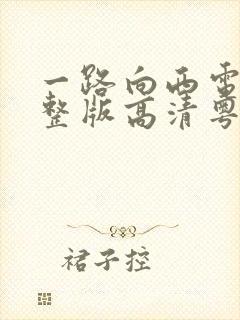 一路向西电
整版高清粤
裙子控